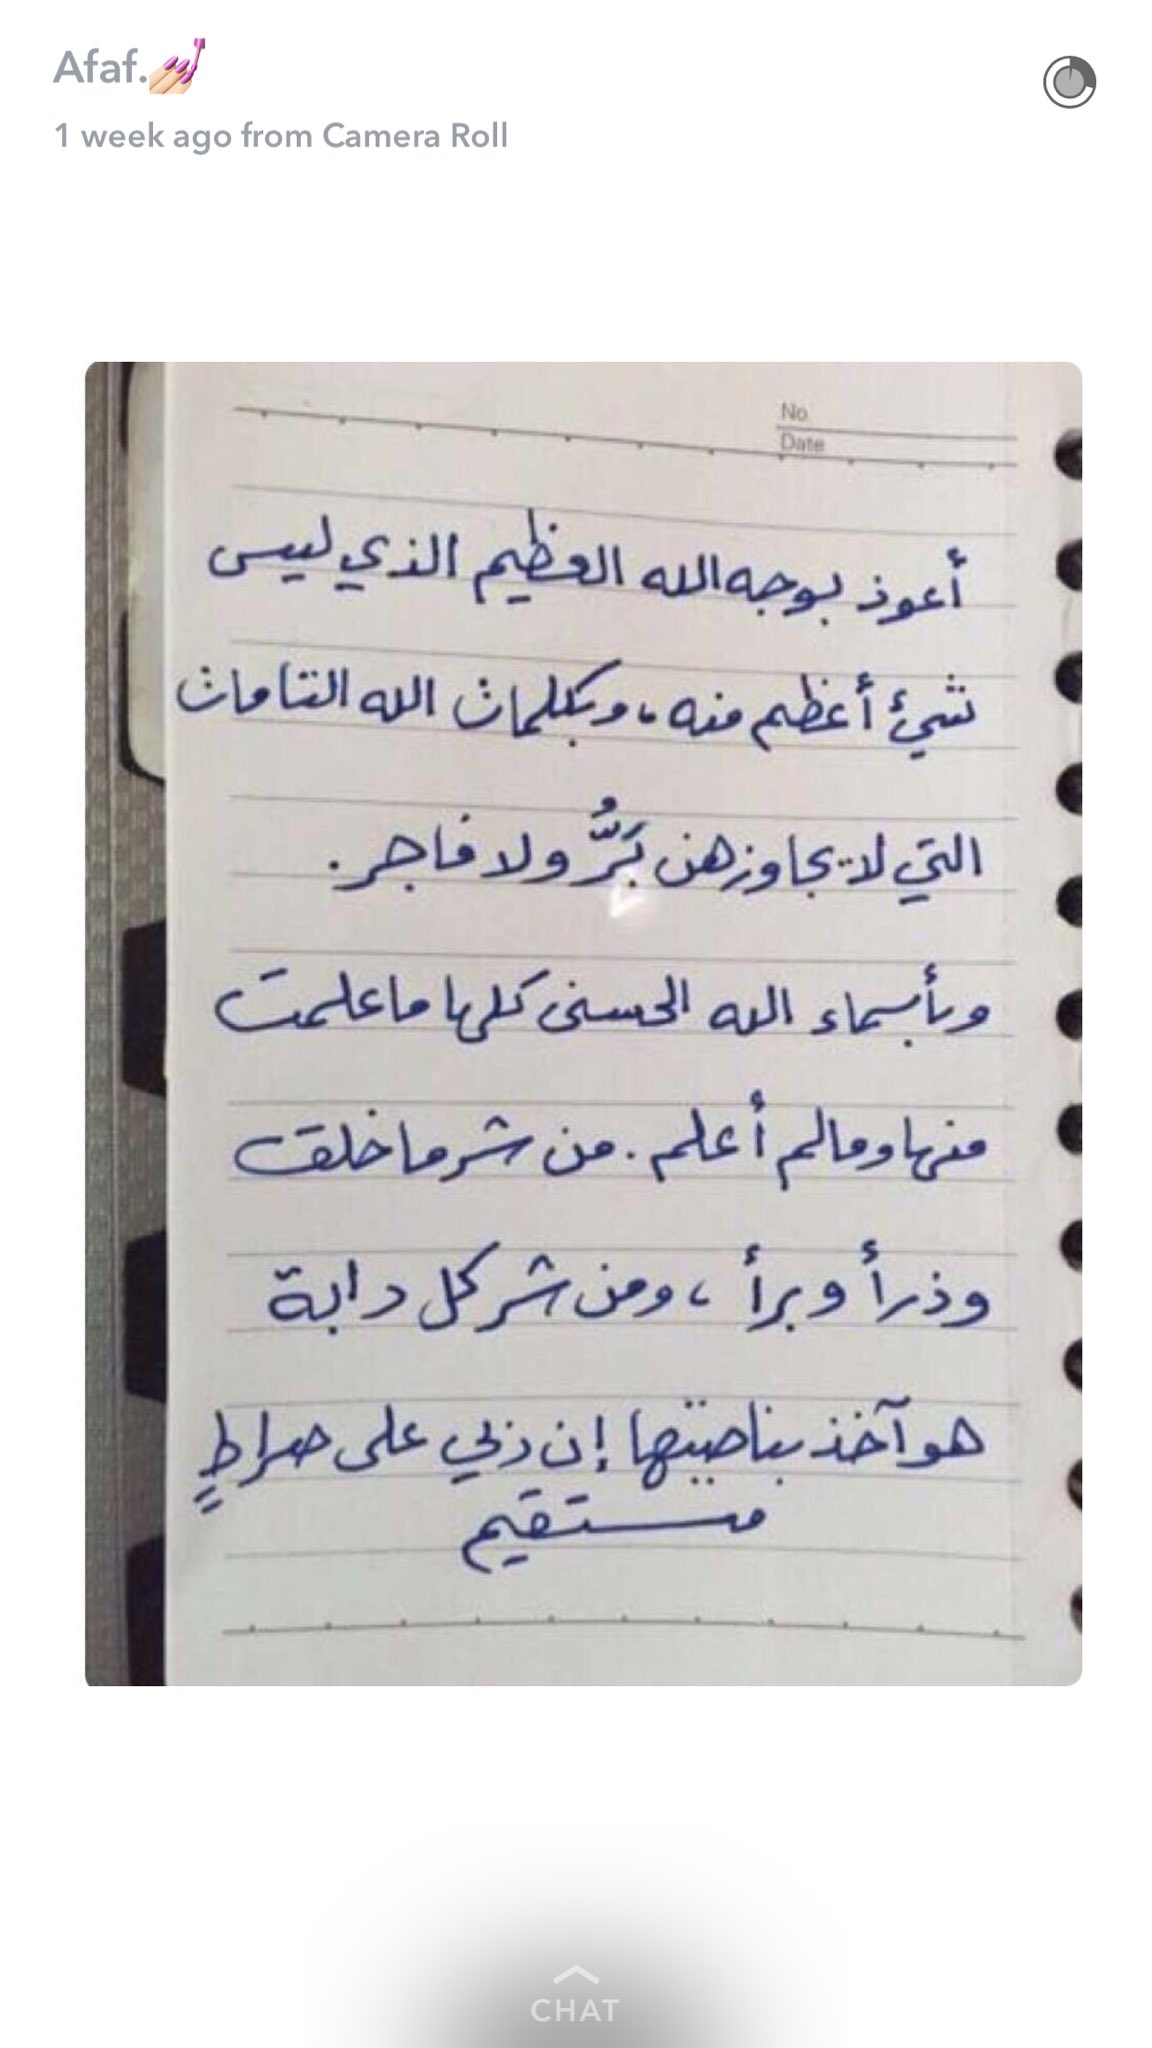 Afaf.💅🏻
1 week ago from Camera Roll
No
Date
أعوذ بوجه الله العظيم الذي ليس
شيئ أعظم منه ، وبكلمات الله التامات
التي لا يجاوزهن بَرٌّ ولا فاجر .
وبأسماء الله الحسنى كلها ما علمت
منها وما لم أعلم . من شر ما خلق
وذرأ وبرأ ، ومن شر كل دابة
هو آخذ بناصيتها إن ربي على صراطٍ
مستقيم
CHAT